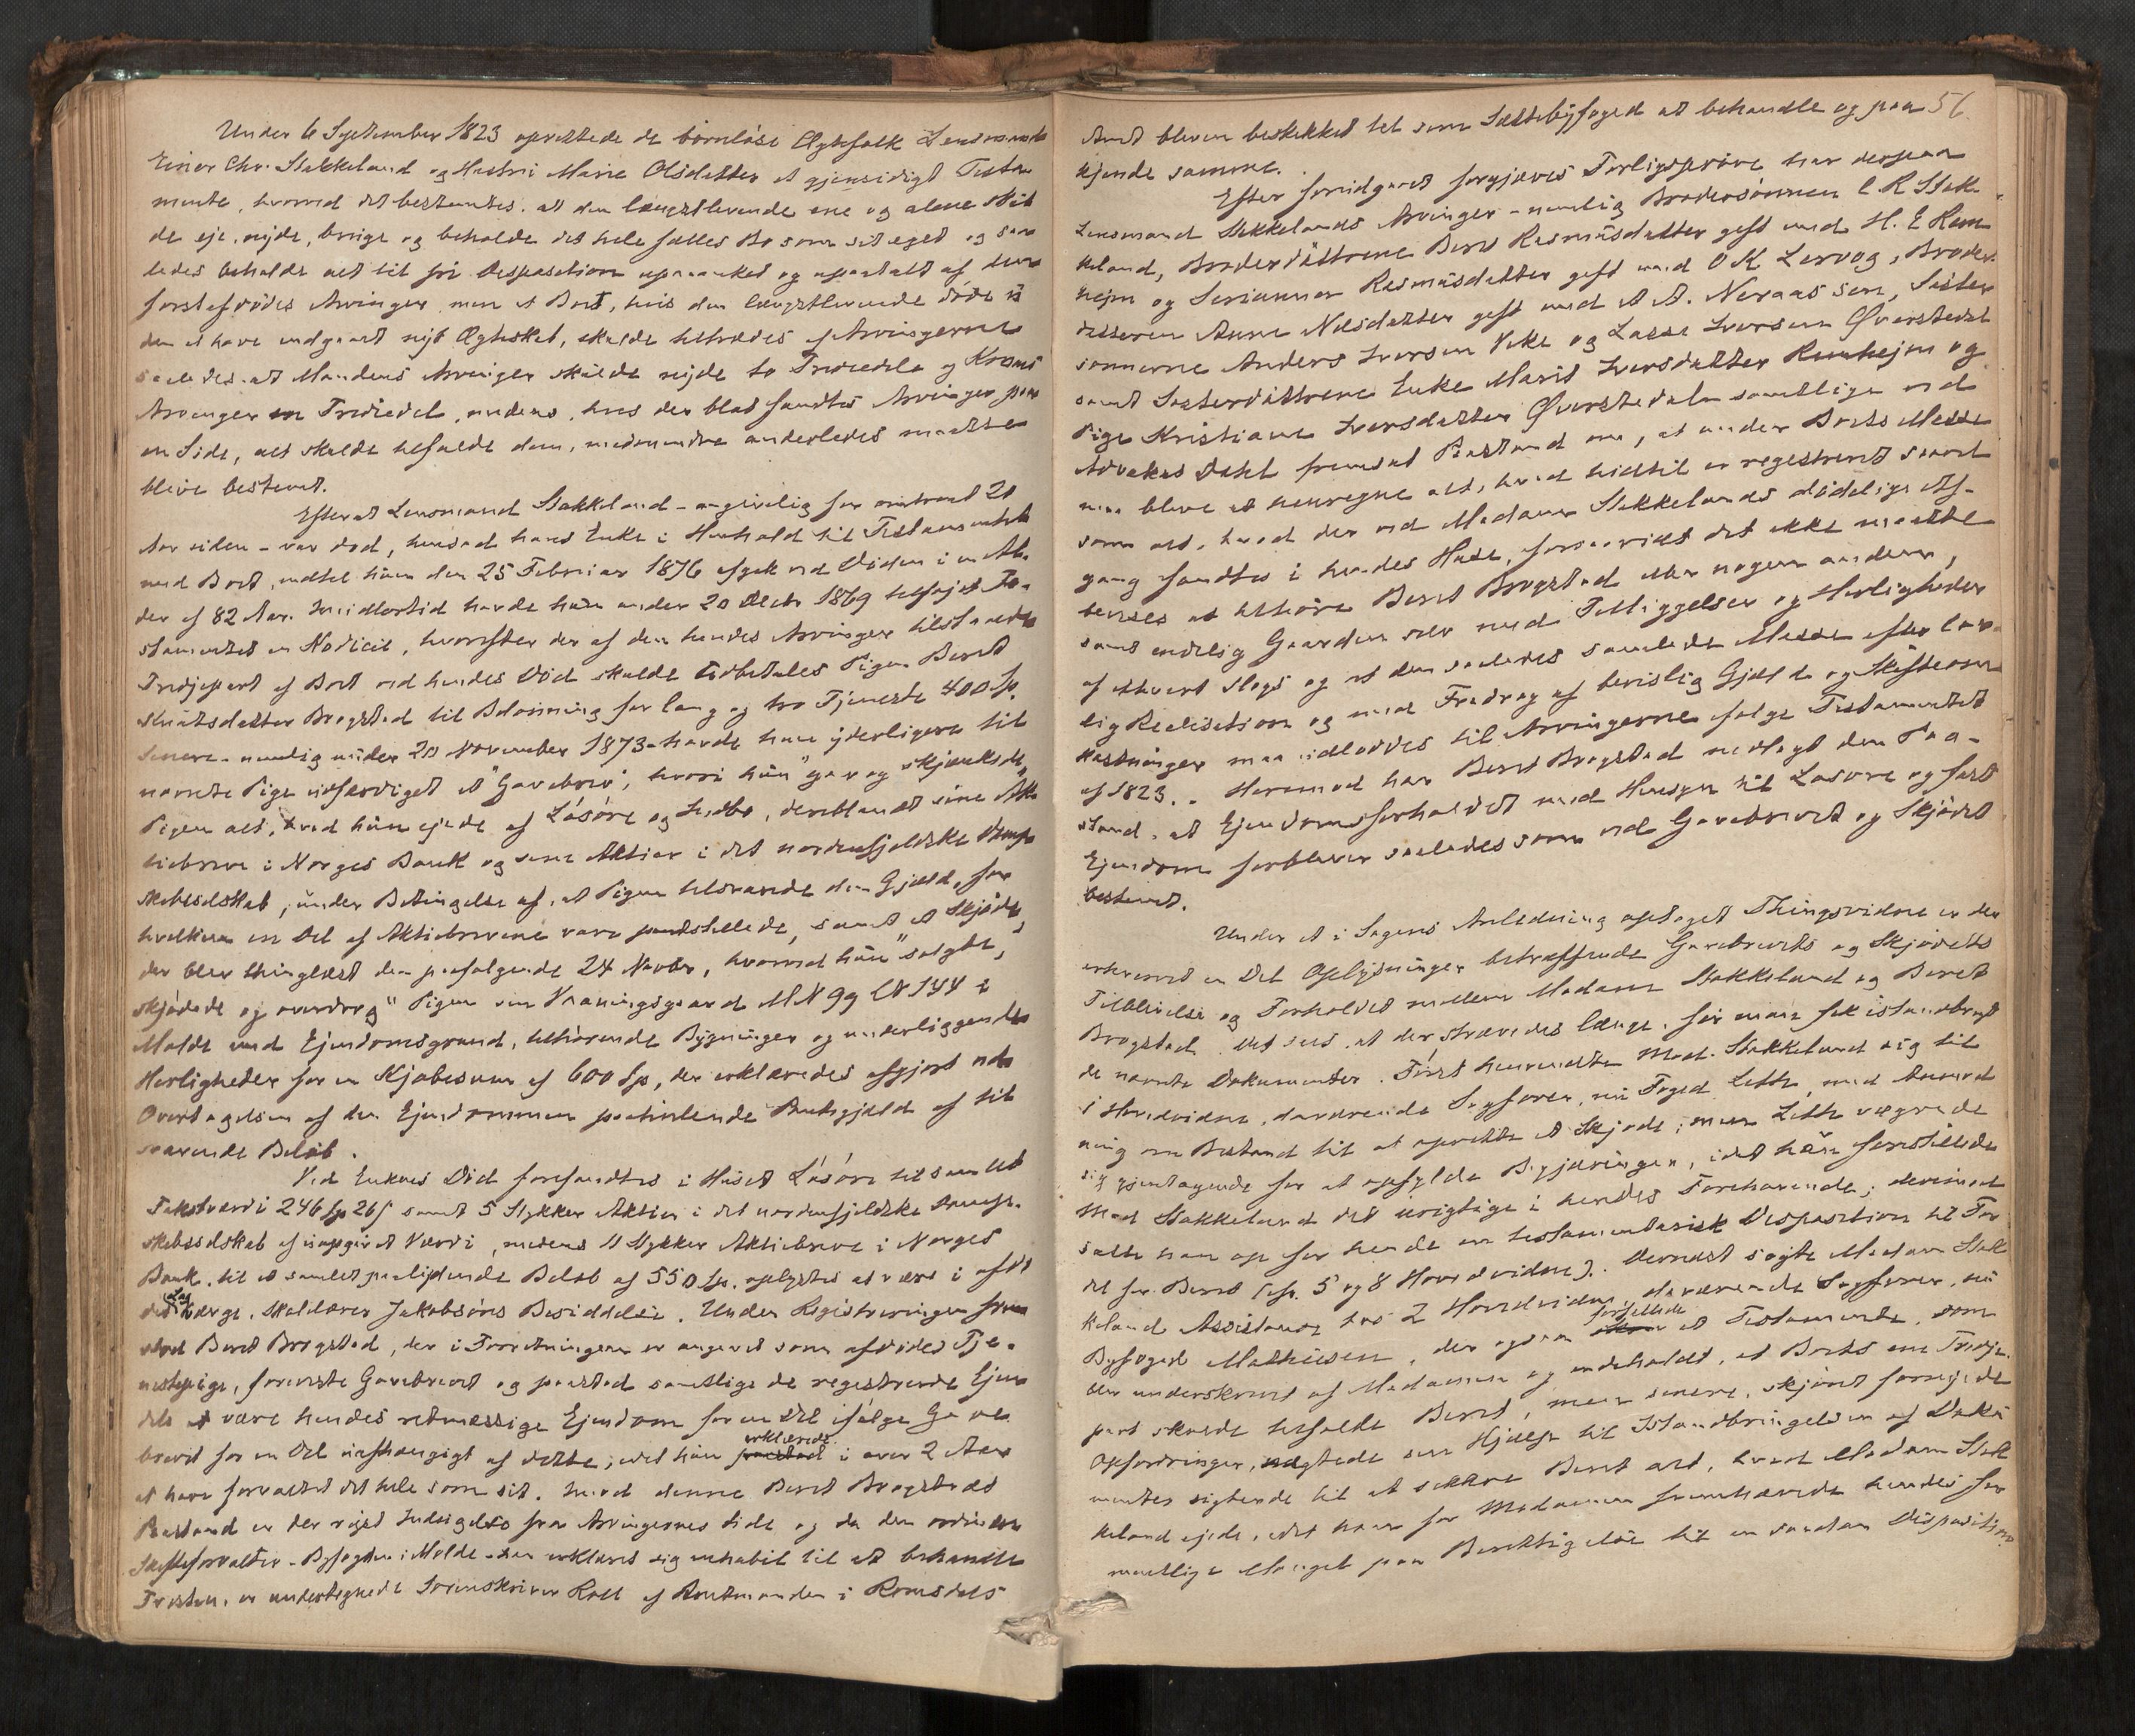 Under 6 September 1823 oprettede de barnløse Ægtefolk Lensmand
Einer Chr. Stakkeland og Hustru Marie Olsdatter et gjensidigt Testa
mente, hvorved det bestemtes, at den længstlevende ene og alene skul
de eje, nyde, bruge og beholde det hele fælles Bo som sit eget og saa
ledes beholde alt til fri Desposition upaaanket og upaatalt af den
førstafdødes Arvinger, men at Boet, hvis den længstlevende døde u
den at have indgaaet nyt Ægteskab, skulde tiltrædes af Arvingerne
saaledes, at Mandens Arvinger skulde nyde to Trediedele og Konens
Arvinger en Trediedel, medens, hvis der blot fandtes Arvinger paa
en Side, alt skulde tilfalde dem, medmindre anderledes maatte
blive bestemt.
Efterat Lensmand Stakkeland - angivelig for omtrent 20
Aar siden - var død, hensad hans Enke i Henhold til Testamentet
med Boet, indtil hun den 25 Februar 1876 afgik ved Døden i en Al-
der af 82 Aar. Imidlertid havde hun under 20 Decbr 1869 tilføjet Te-
stamentet en Kodicil, hvorefter der af den hendes Arvinger tilstaaede
Tredjepart af Boet ved hendes Død skulde udbetales Pigen Beret
Knutsdatter Brogstad til Belønning for lang og tro Tjeneste 400 Sp.
Senere - nemlig under 20 November 1873 - havde hun yderligere til
nævnte Pige udfærdiget et "Gavebrev", hvori hun "gav og skjænkede"
Pigen alt, hvad hun ejede af Løsøre og Indbo, deriblandt sine Ak
tiebreve i Norges Bank og sine Aktier i det nordenfjeldske Damp
skibsselskab, under Betingelse af, at Pigen tilsvarede den Gjæld, for
hvilken en Del af Aktiebrevene vare pantstillede, samt et Skjøde,
der blev thinglæst den paafølgende 24 Novbr, hvorved hun "solgte,
skjødede og overdrog" Pigen sin Vaaningsgaard M N 99 LN 144 i
Molde med Ejendomsgrund, tilhørende Bygninger og underliggende
Herligheder for en Kjøbesum af 600 Sp, der erklæredes afgjort ved
Overtagelsen af den Ejendommen paahvilende Bankgjæld af til
svarende Beløb.
Ved Enkens Død forefandtes i Huset Løsøre til samlet
Takstværdi 246 Sp 26 s samt 5 Stykker Aktier i det nordenfjeldske Damp-
skibsselskab af uopgivet Værdi, medens 11 Stykker Aktiebreve i Norges
Bank, til et samlet paalydende Beløb af 550 Sp. oplystes at være i afdø
des Lagværge, Skolelærer Jakobsøns Besiddelse. Under Registreringen frem
stod Beret Brogstad, der i Forretningen er angivet som afdødes Tje-
nestepige, foreviste Gavebrevet og paastod samtlige de registrerede Ejen
dele at være hendes retmæssige Ejendom for en Del ifølge Gave
brevet for en Del uafhængigt af dette, idet hun erklærede i over 2 Aar
at have forvaltet det hele som sit. Imod denne Beret Brogstads
Paastand er der rejst Indsigelse fra Arvingernes Side og da den ordinære
Skifteforvalter - Byfogden i Molde - har erklæret sig inhabil til at behandle
Tvisten, er undertegnede Sorenskriver Roll af Amtmanden i Romsdals
56
Amt bleven beskikket til som Sættebyfoged at behandle og paa
kjende samme.
Efter foreidgaaet forgjæves Forligsprøve har derpaa
Lensmand Stakkelands Arvinger - nemlig Brodersønnen C R Stak
keland, Broderdøttrene Beret Rasmusdatter gift med H. E Rem
hejm og Serianna Rasmusdatter gift med O K Lervog, Broder
datteren Anne Nilsdatter gift med A A. Neraas sen, Søster
sønnerne Anders Iversen Vike og Lasse Iversen Øverstedal
samt Søsterdøttrene Enke Marit Iversdatter Remhejm og
Pige Kristiane Iversdatter Øverstedalen samtlige ved
Advokat Dahl fremsat Paastand om, at under Boets Masse
maa blive at henregne alt, hvad hidtil er registreret saavel
som alt, hvad der ved Madame Stakkelands dødelige Af-
gang fandtes i hendes Huse, forsaavidt det ikke maatte
bevises at tilhøre Beret Brogstad eller nogen anden,
samt endelig Gaarden selv med Tilliggelser og Herligheder
af ethvert Slags og at den saaledes samlede Masse efter lov-
lig Realisation og med Fradrag af bevislig Gjæld og Skifteom
kostninger maa udloddes til Arvingerne følge Testamentet
af 1823. Herimod har Beret Brogstad nedlagt den Paa-
stand, at Ejendomsforholdet med Hensyn til Løsøre og fast
Ejendom forbliver saaledes som ved Gavebrevet og Skjødet
bestemt.
Under et i Sagens Anledning optaget Thingsvidne er der
erhvervet en Del Oplysninger betræffende Gavebrevets og Skjødets
Tilblivelse og Forholdet mellem Madam Stakkeland og Beret
Brogstad. Det sees, at der strævedes længe, før man fik istandbragt
de nævnte Dokumenter. Først henvendte Mad. Stakkeland sig til
1 Hovedvidne, daværende Sagfører, nu Foged Leth, med Anmod
ning om Bistand til at oprette et Skjøde; men Leth vægrede
sig gjentagende for at opfylde Begjæringen, idet han forestillede
Mad Stakkeland det urigtige i hendes Forehavende; derimod
satte han op for hende en testamentarisk Disposition til For
del for Beret (cfr. 5 og 8 Hovedvidne). Dernæst søgte Madam Stak
keland Assistance hos 2 Hovedvidne, daværende Sagfører, nu
Byfoged Mathiesen, der ogsaa forfattede et Testamente, som
blev underskrevet af Madamen og indeholdt, at Boets ene Tredje-
part skulde tilfalde Beret, men senere, skjønt fornyede
Opfordringer, nægtede sin Hjælp til Istandbringelsen af Doku
menter sigtende til at sikkre Beret alt, hvad Madam Stak
keland ejede, idet han for Madamen fremhævede hendes for
mentlige Mangel paa Berettigelse til en saadan Disposition.